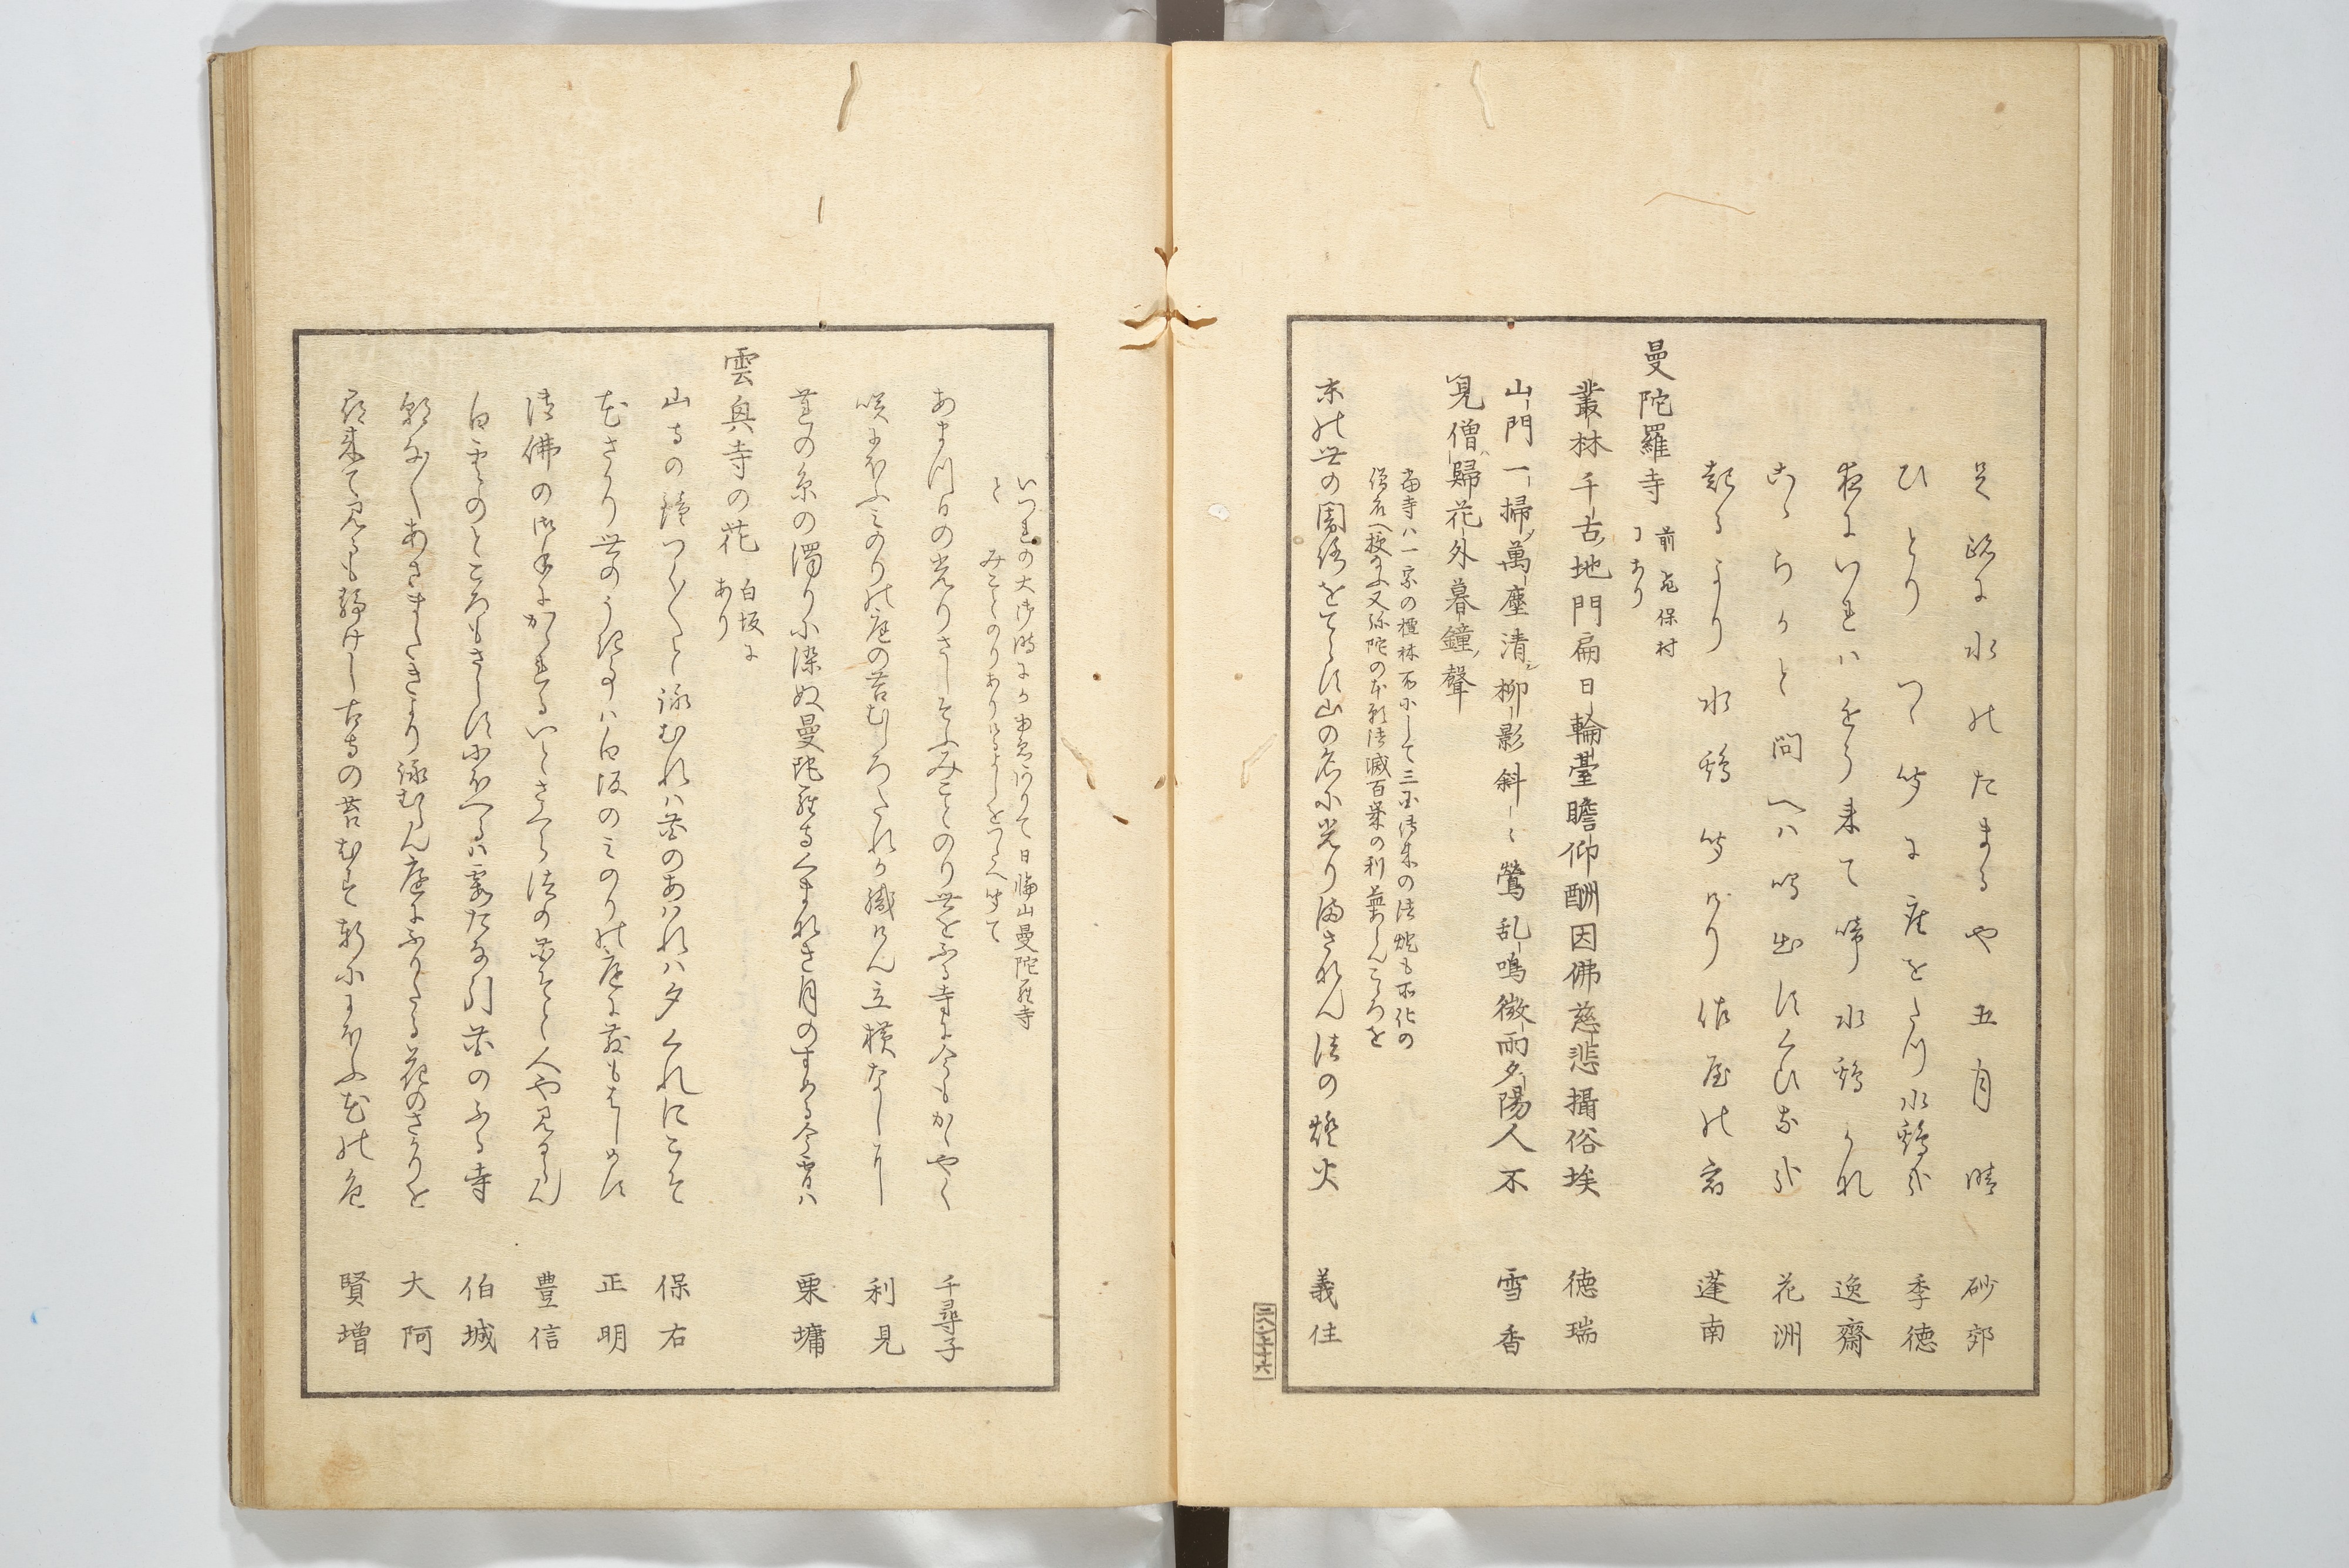 足跡に水のたまるや五月晴 砂郊
ひとりつゝ夕に座をたつ水鶏哉 季徳
夜にいれは近う来て啼水鶏かな 逸齋
と問へは鳴出すくひな哉 花洲
起るより水鶏 けり 屋の宿 蓬南
曼陀羅寺 前飛保村にあり
叢林千古地門扁日輪臺瞻仰酬因佛慈悲攝俗埃 徳瑞
山門一掃萬塵清柳影斜々鶯乱鳴微雨夕陽人不 雪香
見僧歸花外暮鐘聲
當寺ハ一宗の檀林所にして三国伝来の法 も所化の
僧 へ授 又弥陀の本願法滅百歳の利益 こゝろを
末の世の闇路をてらす山の名に光り満さなん法の燈火 義住
いつれの大御時にか有 て日輪山曼陀羅寺
と みことのりありけるよしをつたへ て
あま川日の光りさしそふみことのり世をふる寺に今もかゝやく 千尋子
咲にほふみのりの庭の苔むしろたれか織けん立横なしに 利見
蓮の糸の濁りに染ぬ曼陀羅寺くまなき月のすめる今宵ハ 栗墉
雲興寺の花 白坂にあり
山寺の鐘つく〳〵と詠むれハ花のあはれハ夕くれにこそ 保右
花さかり世のうき事ハ白坂のみのりの庭に 正明
法佛の御手にかゝれるいとさくら法の花そと人や見るらん 豊信
白雲のところもさらすにほへるハ霞たな引花のふる寺 伯城
朝な〳〵あさまたきより詠むらん庭にふりたる花のさかりを 大阿
尋来て見るも静けし古寺の苔むす軒ににほふ花の色 賢増
二八ノ七十六